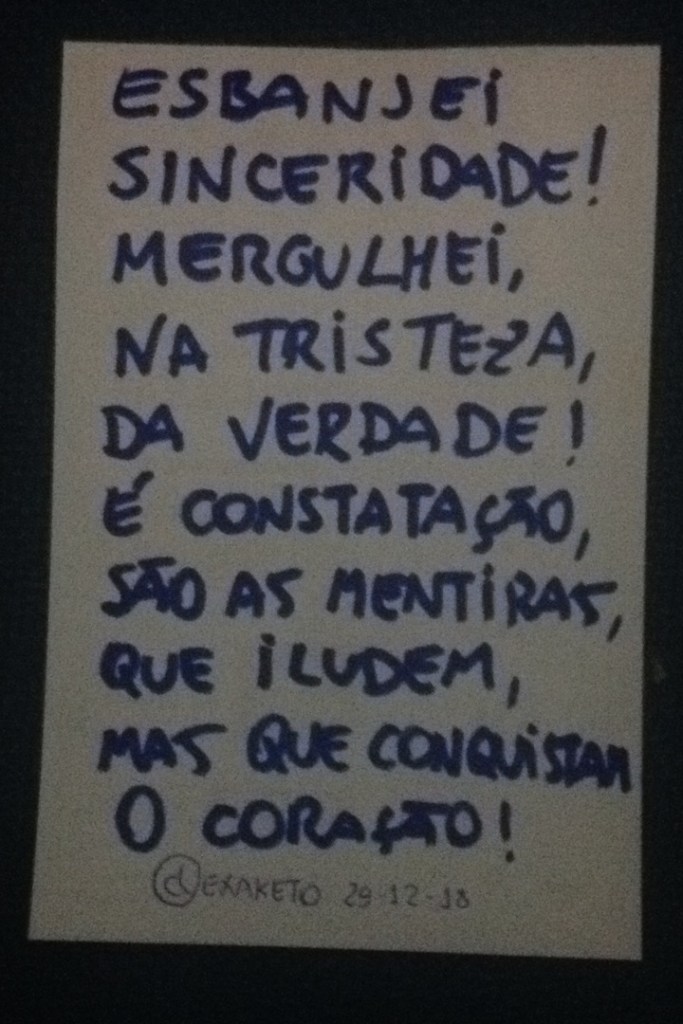 ESBANJEI
SINCERIDADE!
MERGULHEI,
NA TRISTEZA,
DA VERDADE!
É CONSTATAÇÃO,
SÃO AS MENTIRAS,
QUE ILUDEM,
MAS QUE CONQUISTAM
O CORAÇÃO!
@DEXAKETO 29-12-18